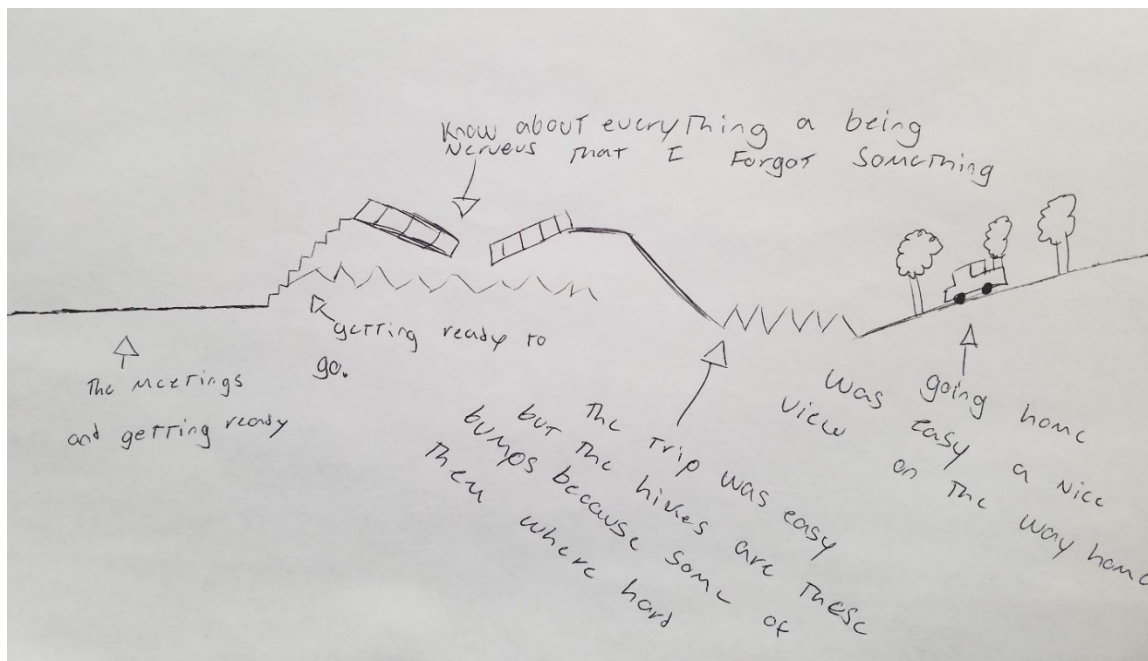 Know about everything a being
Nerveus that I Forgot Something
getting ready to
go.
The meetings
and getting ready
The trip was easy
but the hikes are these
bumps because some of
them where hard
going home
was easy a nice
view on the way home